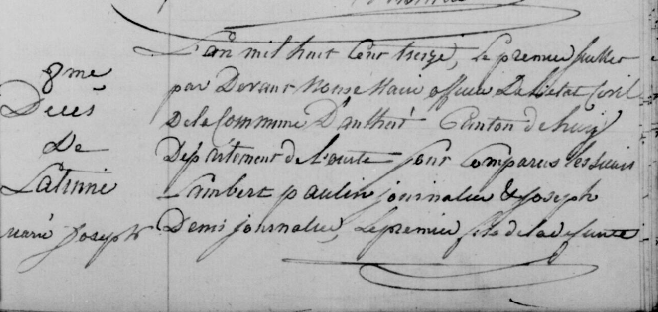 8me
Décès
De
Latinne
marie Joseph
L'an mil huit Cent treize, Le premier Juillet
par Devant Nous Maire officier De L'état Civil
De la Commune D'antheit Canton de huy
Département de L'ourte Sont Comparus les Sieurs
Lambert paulin journalier & Joseph
Denis journalier, Le premier fils de la defunte